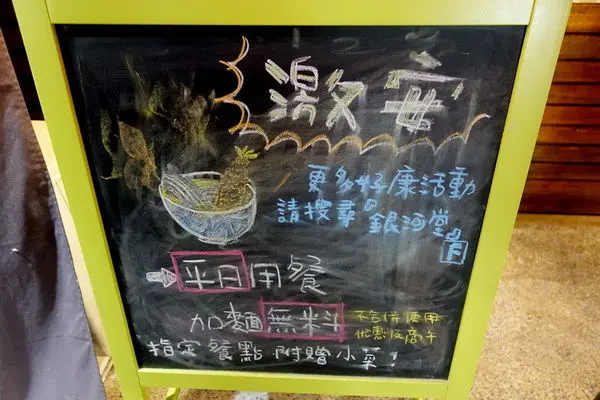 更多好康活動
請搜尋 銀河堂
F
平日用餐
加麵無料
不合併使用
優惠及商午
指定餐點 附贈小菜!